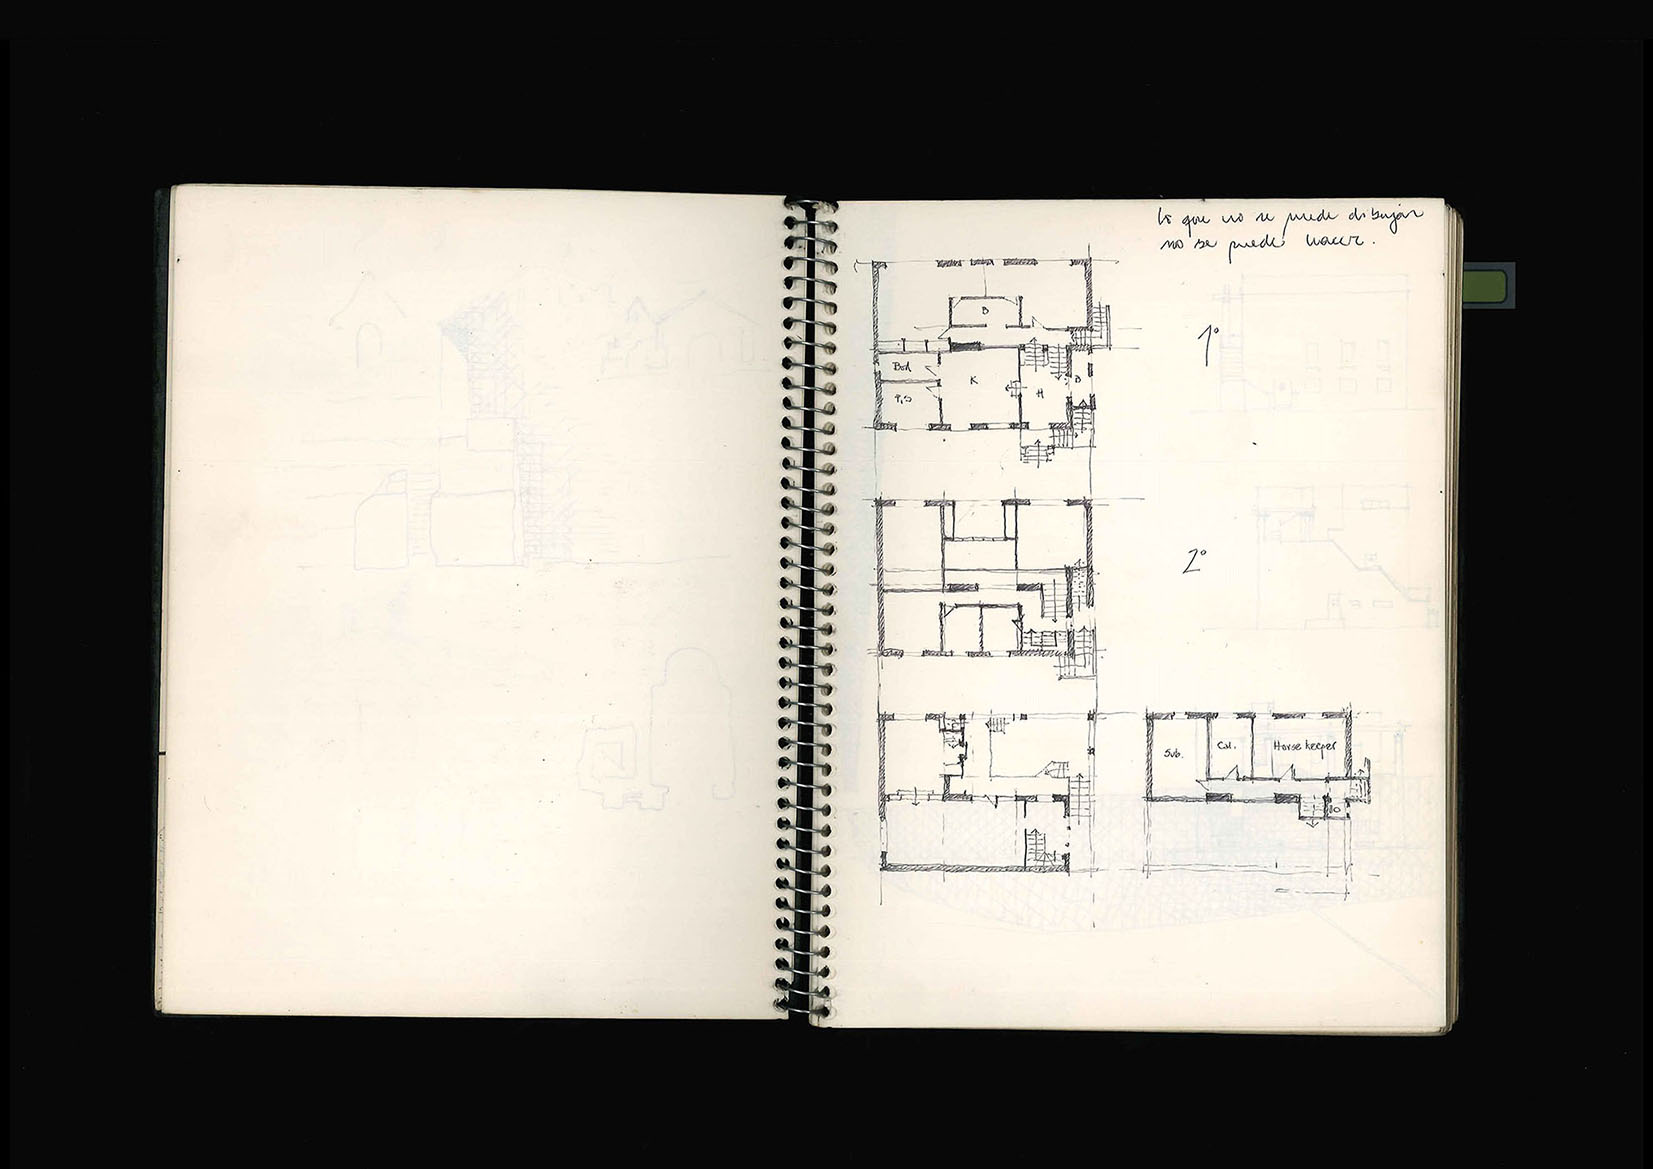 lo que no se puede dibujar
no se puede hacer.
B
1º
Bed
K
H
B
2º
Sub.
Col.
Horse keeper